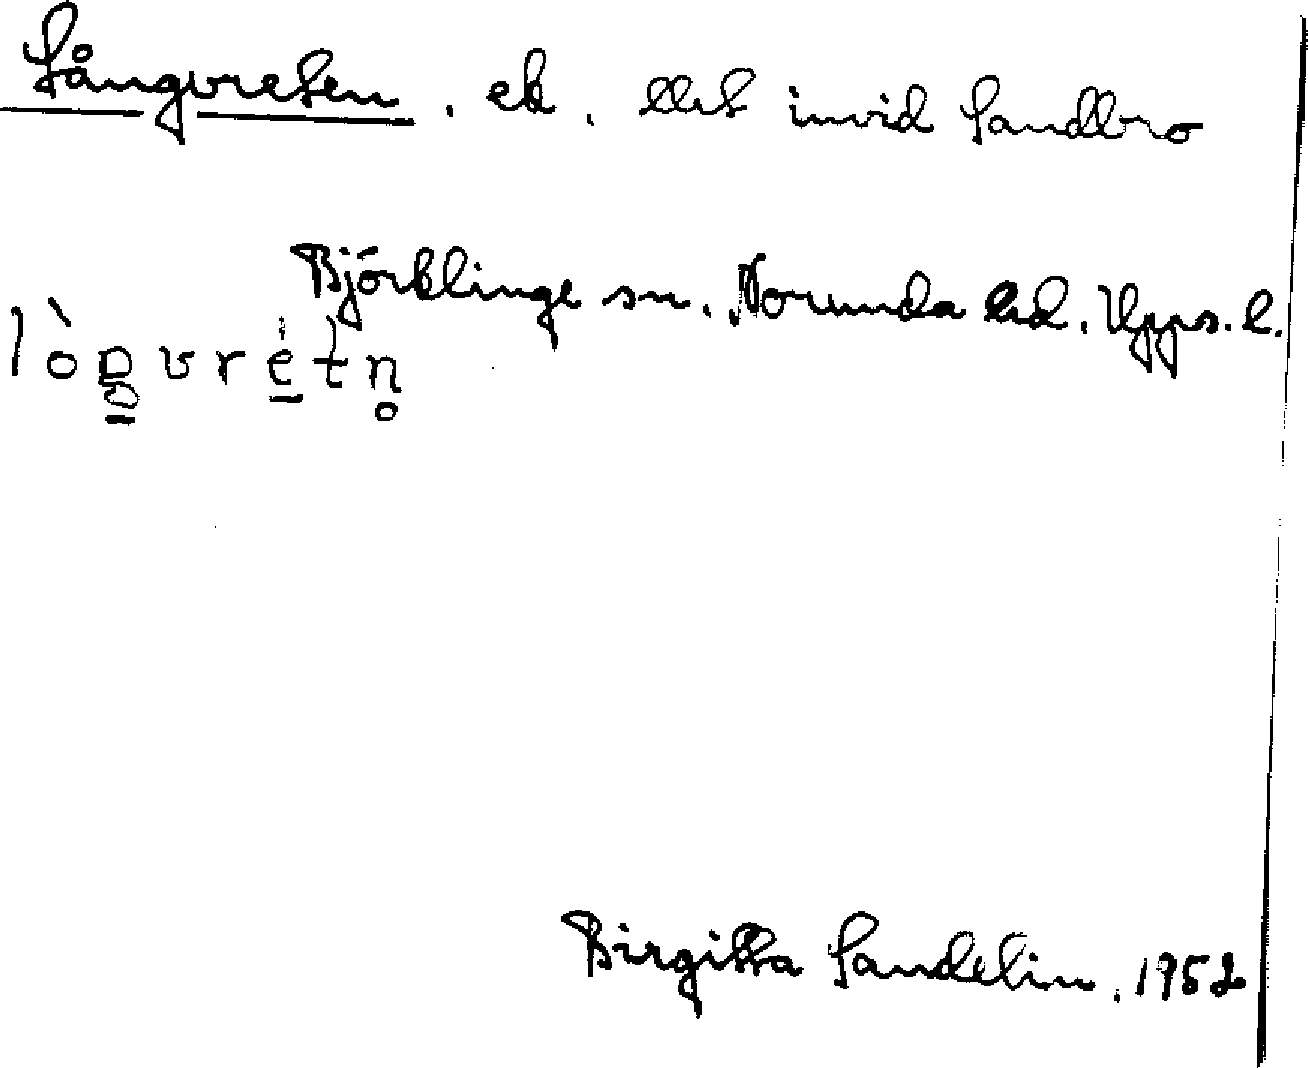 Långvreten. ek. invid Sandbro
Björklinge sn. Norunda hd. Upps. l.
lòŋvrétn̥
Birgitta Sandelin, 1952